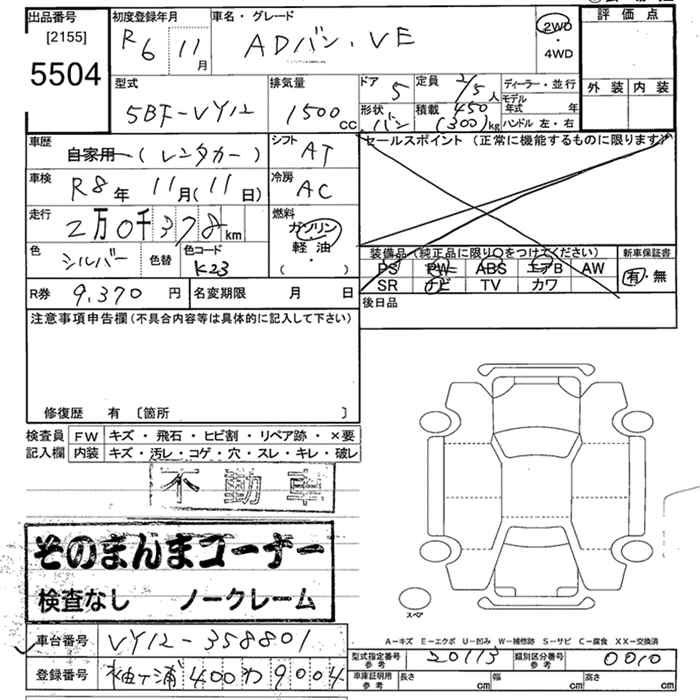 出品番号 初度登録年月 車名・グレード 評価点
[2155] R6 11月 ADバン.VE 2WD・4WD
5504
型式 排気量 ドア 5 定員 2/5人 ディーラー・並行 外装 内装
5BF-VY12 1500cc 形状 バン 積載 450(300)kg モデル年式 年
ハンドル 左・右
車歴 自家用(レンタカー) シフト AT セールスポイント (正常に機能するものに限ります)
車検 R8年 11月(11日) 冷房 AC
走行 2万0千378km 燃料 ガソリン 軽油 ( )
色 シルバー 色替 色コード K23 装備品 (純正品に限り○をつけてください) 新車保証書
PS PW ABS エアB AW 有・無
SR ナビ TV カワ
R券 9,370円 名変期限 月 日 後日品
注意事項申告欄 (不具合内容等は具体的に記入して下さい)
修復歴 有 〔箇所 〕
検査員 FW キズ・飛石・ヒビ割・リペア跡・×要
記入欄 内装 キズ・汚レ・コゲ・穴・スレ・キレ・破レ
不動車
そのまんまコーナー
検査なし ノークレーム
スペア
A-キズ E-エクボ U-凹み W-補修跡 S-サビ C-腐食 XX-交換済
車台番号 VY12-358801
型式指定番号 参考 20113 類別区分番号 参考 0010
登録番号 袖ヶ浦400わ9004
車庫証明用 参考 長さ cm 幅 cm 高さ cm